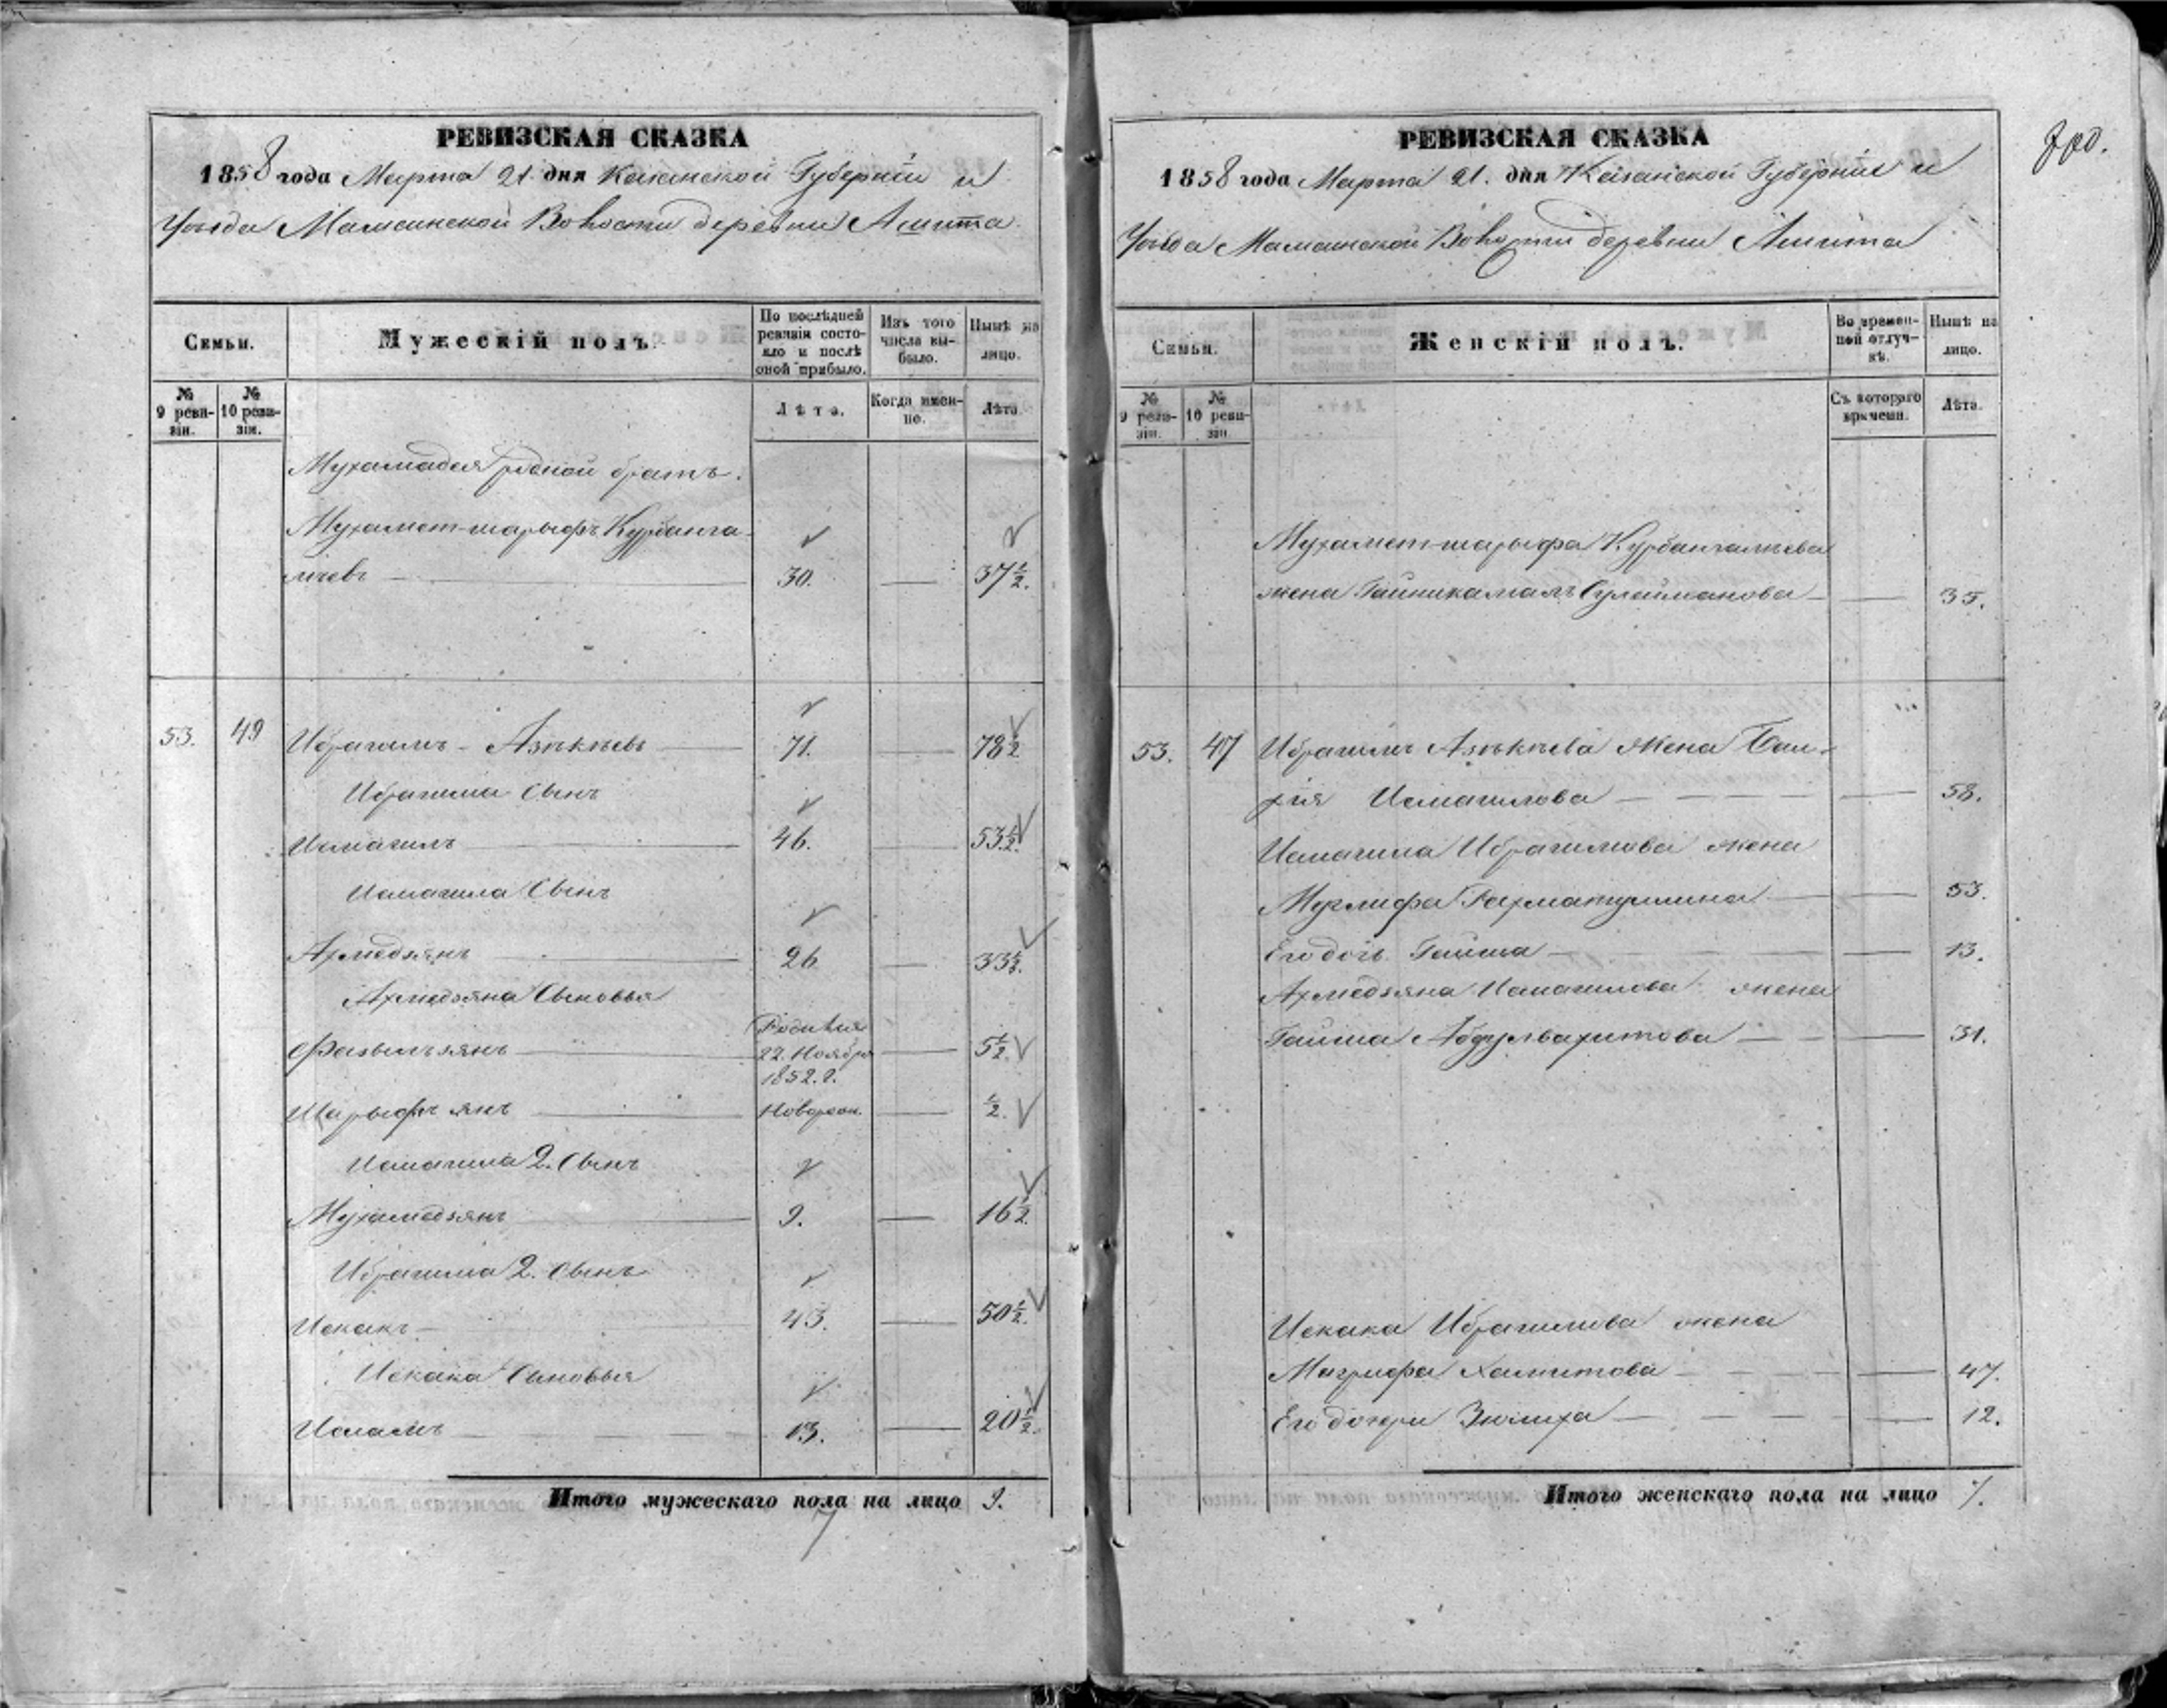 РЕВИЗСКАЯ СКАЗКА
1858 года Марта 21. дня Казанской Губернiи и
Уѣзда Мамсинской Волости деревни Ашита
Семьи.
Мужескiй полъ.
По послѣдней ревизiи состояло и послѣ оной прибыло.
Изъ того числа выбыло.
Нынѣ на лицо.
№ 9 ревизiи.
№ 10 ревизiи.
Лѣта.
Когда именно.
Лѣта.
Мухамадея родной братъ.
Мухамет-шарыфъ Курбанга-
лѣевъ 30. 37½.
53. 49 Ибрагимъ Азѣкѣевъ 71. 78½
Ибрагима Сынъ
Исмагилъ 46. 53½.
Исмагила Сынъ
Ахмедзянъ 26 33½.
Ахмедзяна Сыновья
Фазылъзянъ Родился 22. Ноября 1852. г. 5½
Шарыфъ янъ Новорож. ½.
Исмагила 2. Сынъ
Мухамедзянъ 9. 16½
Ибрагима 2. Сынъ
Искакъ 43. 50½.
Искака Сыновья
Исламъ 13. 20½.
Итого мужескаго пола на лицо 9.
РЕВИЗСКАЯ СКАЗКА
1858 года Марта 21. дня Казанской Губернiи и
Уѣзда Мамсинской Волости деревни Ашита
Семьи.
Женскiй полъ.
Во временной отлучкѣ.
Нынѣ на лицо.
№ 9 ревизiи.
№ 10 ревизiи
Съ котораго времени.
Лѣта.
Мухамет-шарыфа Курбангалѣева
жена Гайникамалъ Сулейманова 35.
53. 47 Ибрагимъ Азѣкѣева Жена
Исмагилова 58.
Исмагила Ибрагимова жена
Муглифа Рахматуллина 53.
Его дочь Гайша 13.
Ахмедзяна Исмагилова жена
Гайша Абдулвахитова 31.
Искака Ибрагимова жена
Магрифа Хамитова 47.
Его дочери Зюлиха 12.
Итого женскаго пола на лицо 7.